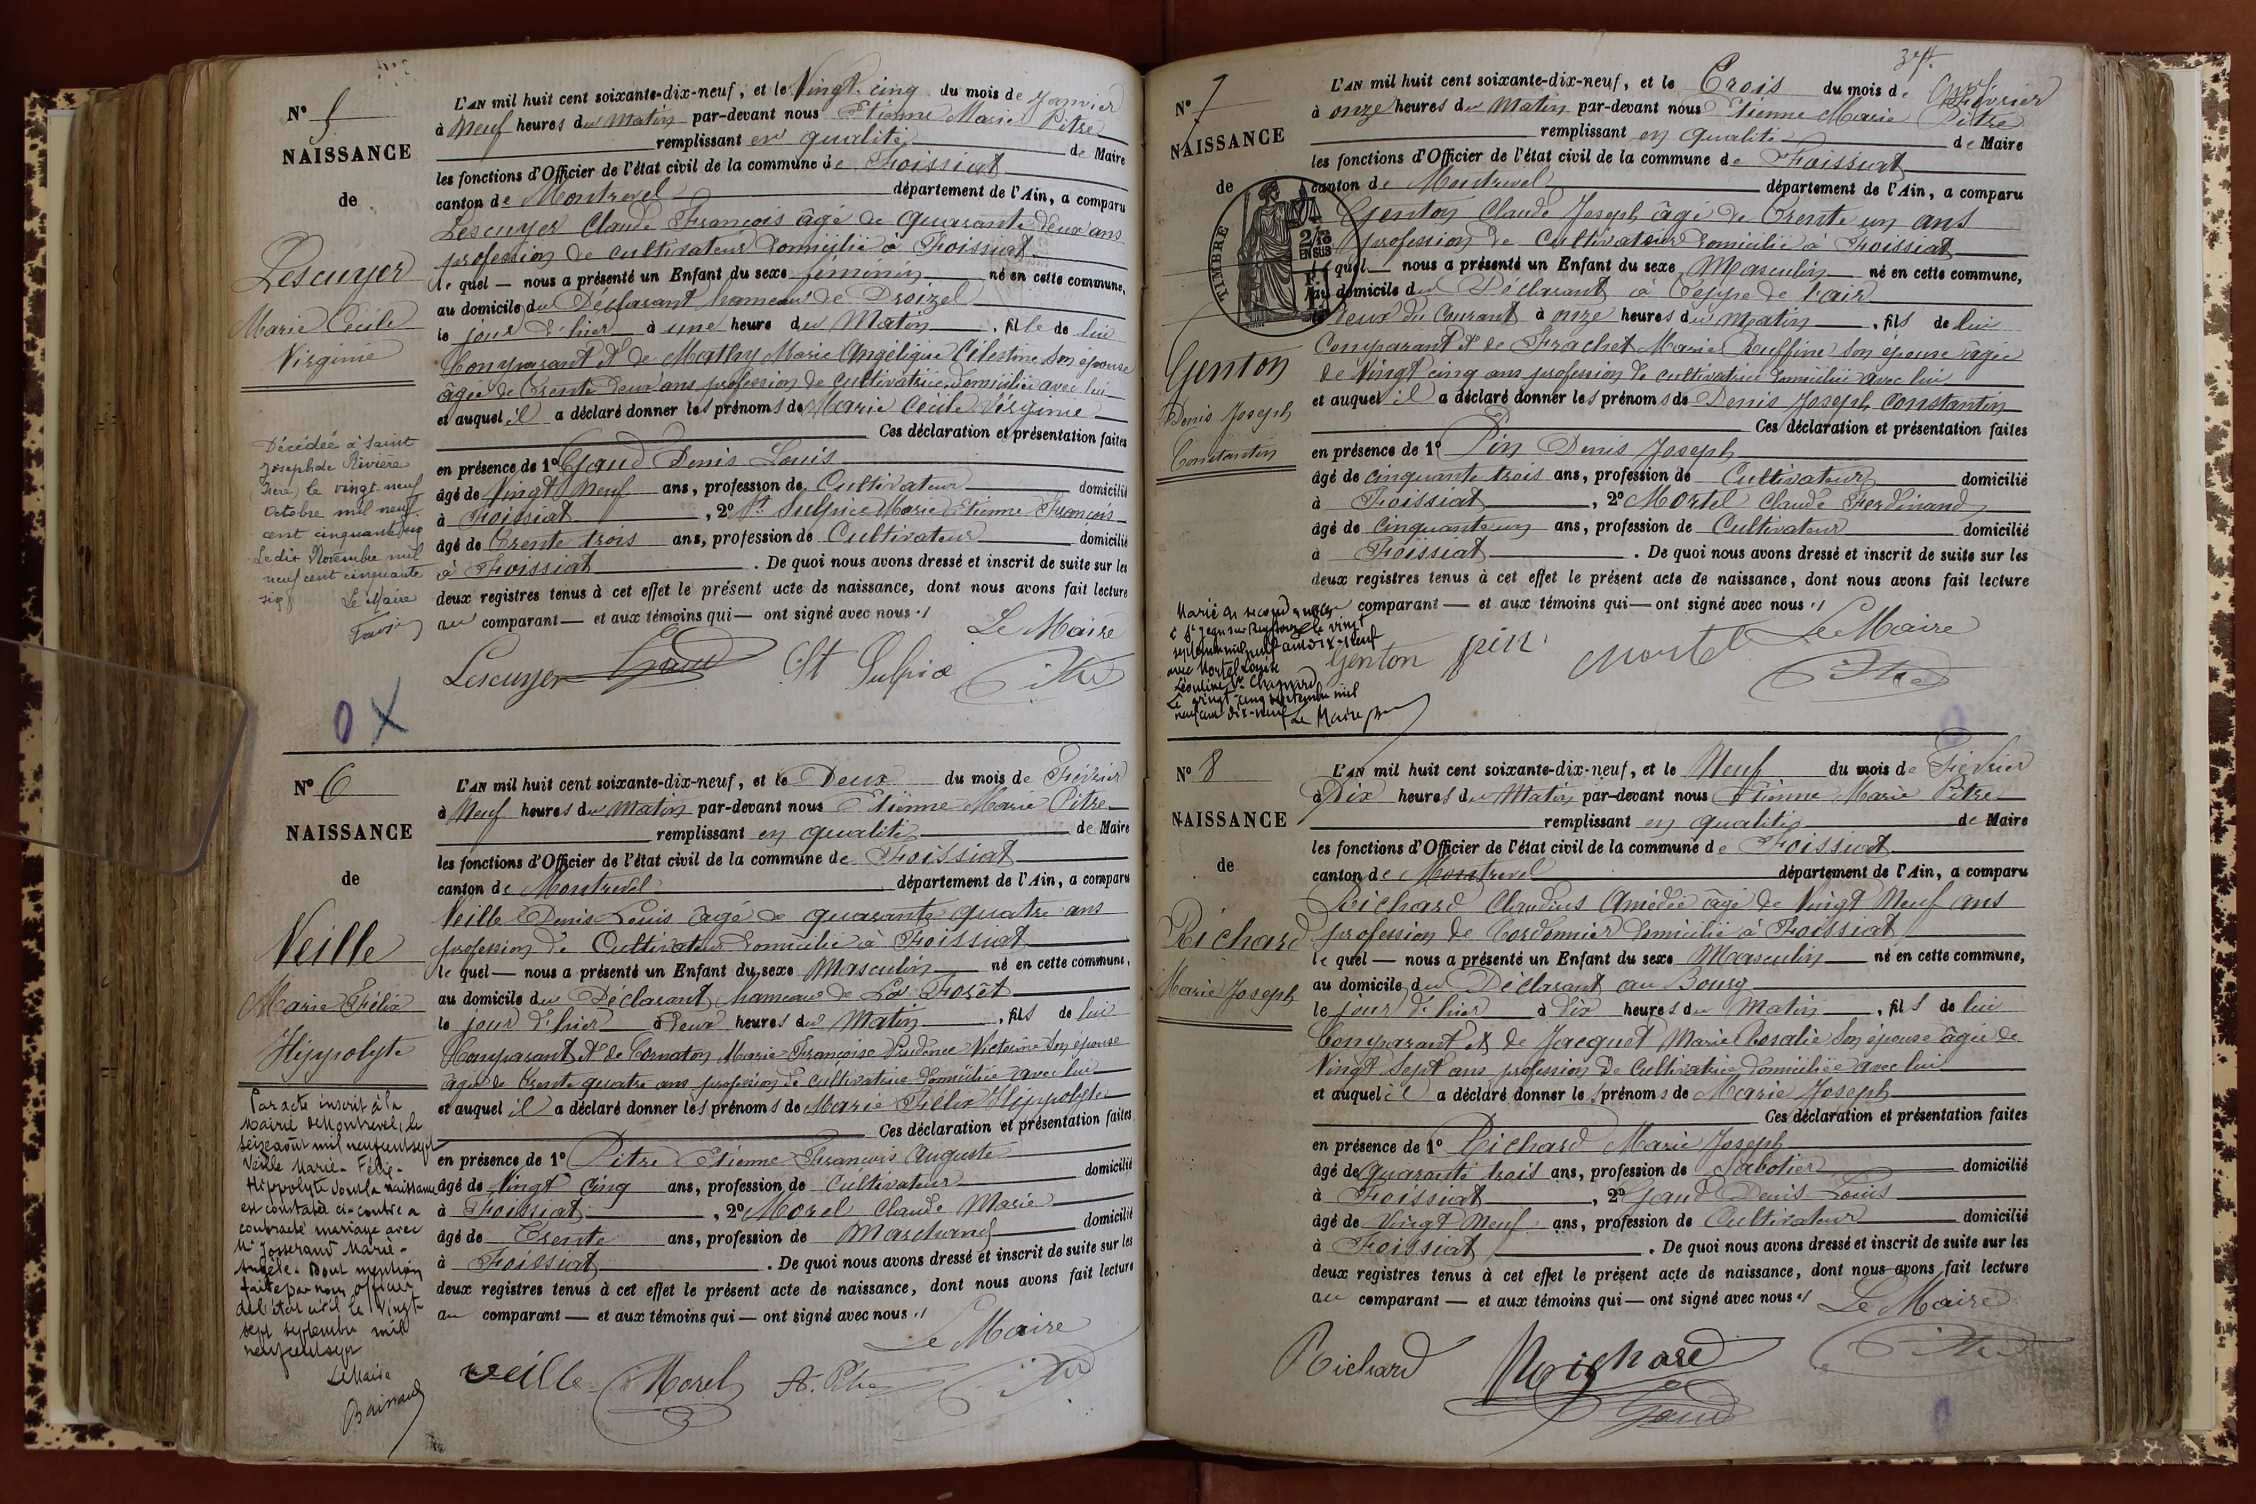 N° 5
NAISSANCE
de
Lescuyer
Marie Cécile
Virginie
Décédée à Saint
Joseph de Rivière
Isère, le vingt-neuf
Octobre mil neuf
cent cinquante six
Le dix Novembre mil
neuf cent cinquante
six Le Maire
L'AN mil huit cent soixante-dix-neuf, et le Vingt cinq du mois de Janvier
à Neuf heures du Matin par-devant nous Etienne Marie Pitre
remplissant en qualité de Maire
les fonctions d'Officier de l'état civil de la commune de Foissiat
canton de Montrevel département de l'Ain, a comparu
Lescuyer Claude François âgé de quarante deux ans
profession de cultivateur domicilié à Foissiat
le quel — nous a présenté un Enfant du sexe féminin né en cette commune,
au domicile du Déclarant hameau de Droizel
le jour d'hier à une heure du Matin, fille de lui
Comparant et de Mathy Marie Angélique Célestine son épouse
âgée de trente deux ans profession de cultivatrice domiciliée avec lui
et auquel il a déclaré donner les prénoms de Marie Cécile Virginie
Ces déclaration et présentation faites
en présence de 1° Gaud Denis Louis
âgé de Vingt Neuf ans, profession de Cultivateur domicilié
à Foissiat, 2° St Sulpice Marie Etienne François
âgé de Trente trois ans, profession de Cultivateur domicilié
à Foissiat. De quoi nous avons dressé et inscrit de suite sur les
deux registres tenus à cet effet le présent acte de naissance, dont nous avons fait lecture
au comparant — et aux témoins qui — ont signé avec nous
Le Maire
Lescuyer Gaud St Sulpice Pitre
0 X
N° 6
NAISSANCE
de
Veille
Marie Félix
Hippolyte
Par acte inscrit à la
Mairie de Montrevel, le
seize août mil neuf cent sept
Veille Marie-Félix-
Hippolyte dont la naissance
est constatée ci-contre a
contracté mariage avec
Mlle Josserand Marie-
Angèle. Dont mention
faite par nous officier
de l'état civil le vingt
sept septembre mil
neuf cent sept
Le Maire
L'AN mil huit cent soixante-dix-neuf, et le Deux du mois de Février
à Neuf heures du Matin par-devant nous Etienne Marie Pitre
remplissant en qualité de Maire
les fonctions d'Officier de l'état civil de la commune de Foissiat
canton de Montrevel département de l'Ain, a comparu
Veille Denis Louis âgé de quarante quatre ans
profession de Cultivateur domicilié à Foissiat
le quel — nous a présenté un Enfant du sexe Masculin né en cette commune,
au domicile du Déclarant hameau de La Forêt
le jour d'hier à deux heures du Matin, fils de lui
Comparant et de Cornaton Marie Françoise Prudence Victorine son épouse
âgée de trente quatre ans profession de cultivatrice domiciliée avec lui
et auquel il a déclaré donner les prénoms de Marie Félix Hippolyte
Ces déclaration et présentation faites
en présence de 1° Pitre Etienne François Auguste
âgé de Vingt cinq ans, profession de cultivateur domicilié
à Foissiat, 2° Morel Claude Marie
âgé de Trente ans, profession de Marchand domicilié
à Foissiat. De quoi nous avons dressé et inscrit de suite sur les
deux registres tenus à cet effet le présent acte de naissance, dont nous avons fait lecture
au comparant — et aux témoins qui — ont signé avec nous
Le Maire
Veille Morel A. Pitre Pitre
N° 7
NAISSANCE
de
TIMBRE
2/10
EN SUS
Genton
Denis Joseph
Constantin
Marié en secondes noces
à St Jean sur Reyssouze le vingt
septembre mil neuf cent dix-neuf
avec Mortel Louise
Léontine Vve Chanard
Le vingt cinq septembre mil
neuf cent dix-neuf Le Maire
L'AN mil huit cent soixante-dix-neuf, et le Trois du mois de Février
à onze heures du Matin par-devant nous Etienne Marie Pitre
remplissant en qualité de Maire
les fonctions d'Officier de l'état civil de la commune de Foissiat
canton de Montrevel département de l'Ain, a comparu
Genton Claude Joseph âgé de Trente un ans
profession de Cultivateur domicilié à Foissiat
le quel — nous a présenté un Enfant du sexe Masculin né en cette commune,
au domicile du Déclarant à Teppe de l'air
le deux du Courant à onze heures du Matin, fils de lui
Comparant et de Frachet Marie Ruffine son épouse âgée
de Vingt cinq ans profession de cultivatrice domiciliée avec lui
et auquel il a déclaré donner les prénoms de Denis Joseph Constantin
Ces déclaration et présentation faites
en présence de 1° Pin Denis Joseph
âgé de cinquante trois ans, profession de Cultivateur domicilié
à Foissiat, 2° Mortel Claude Ferdinand
âgé de Cinquante un ans, profession de Cultivateur domicilié
à Foissiat. De quoi nous avons dressé et inscrit de suite sur les
deux registres tenus à cet effet le présent acte de naissance, dont nous avons fait lecture
comparant — et aux témoins qui — ont signé avec nous
Le Maire
Genton pin Mortel Pitre
N° 8
NAISSANCE
de
Richard
Marie Joseph
L'AN mil huit cent soixante-dix-neuf, et le Neuf du mois de Février
à Dix heures du Matin par-devant nous Etienne Marie Pitre
remplissant en qualité de Maire
les fonctions d'Officier de l'état civil de la commune de Foissiat
canton de Montrevel département de l'Ain, a comparu
Richard Claudius Amédée âgé de Vingt Neuf ans
profession de Cordonnier domicilié à Foissiat
le quel — nous a présenté un Enfant du sexe Masculin né en cette commune,
au domicile du Déclarant au Bourg
le jour d'hier à dix heures du Matin, fils de lui
Comparant et de Jacquet Marie Rosalie son épouse âgée de
Vingt Sept ans profession de Cultivatrice domiciliée avec lui
et auquel il a déclaré donner les prénoms de Marie Joseph
Ces déclaration et présentation faites
en présence de 1° Richard Marie Joseph
âgé de quarante trois ans, profession de Sabotier domicilié
à Foissiat, 2° Gaud Denis Louis
âgé de Vingt Neuf ans, profession de Cultivateur domicilié
à Foissiat. De quoi nous avons dressé et inscrit de suite sur les
deux registres tenus à cet effet le présent acte de naissance, dont nous avons fait lecture
au comparant — et aux témoins qui — ont signé avec nous
Le Maire
Richard Richard Pitre
Gaud